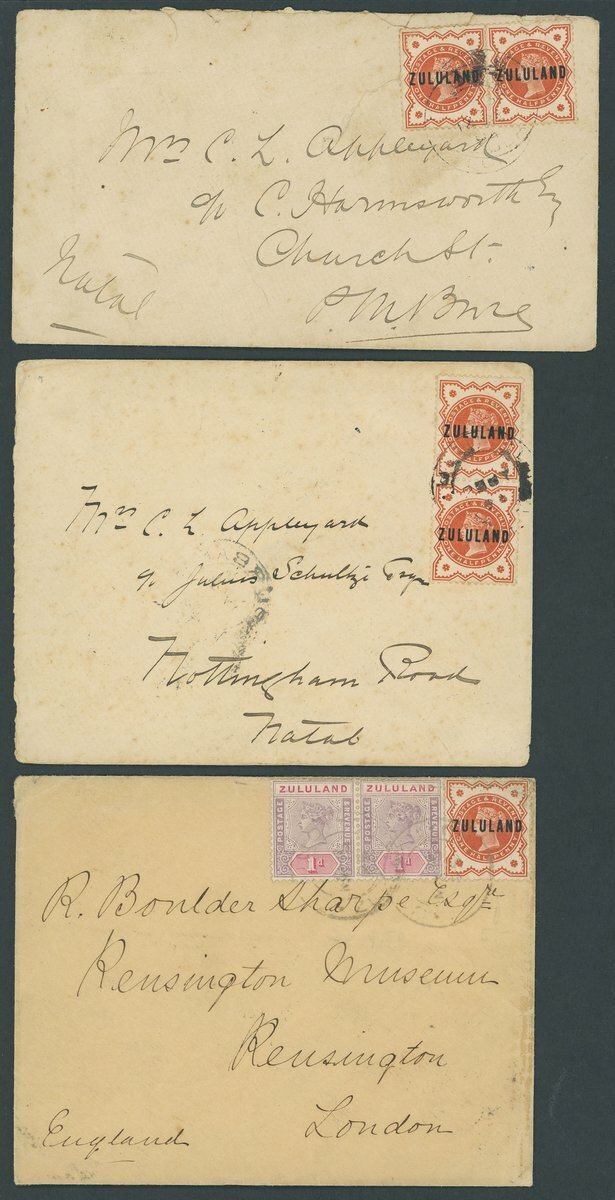 POSTAGE & REVENUE POSTAGE & REVENUE
ZULULAND ZULULAND
ONE HALFPENNY ONE HALFPENNY
Mrs C. L. Appleyard
c/o C. Harmsworth Esq
Church St.
P.M.Burg
Natal
POSTAGE & REVENUE
ZULULAND
ONE HALFPENNY
POSTAGE & REVENUE
ZULULAND
ONE HALFPENNY
Mrs C. L Appleyard
c/o Julius Schultze Esqr
Nottingham Road
Natal
ZULULAND ZULULAND
POSTAGE REVENUE POSTAGE REVENUE
1d 1d
POSTAGE & REVENUE
ZULULAND
ONE HALFPENNY
R. Bowlder Sharpe Esqre
Kensington Museum
Kensington
London
England